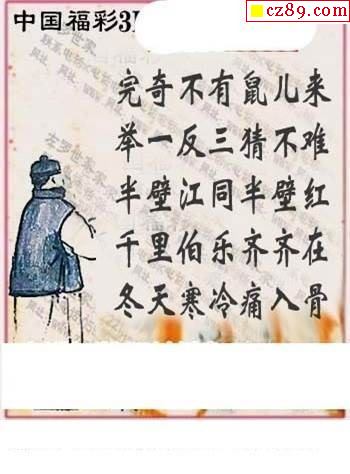 cz89.com
中国福彩3D
完奇不有鼠儿来
举一反三猜不难
半壁江同半壁红
千里伯乐齐齐在
冬天寒冷痛入骨